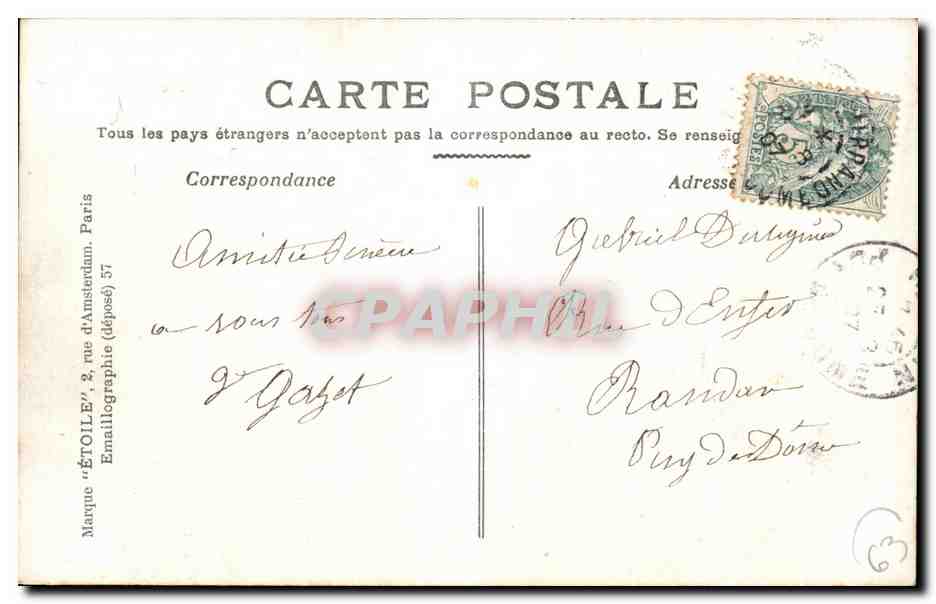 CARTE POSTALE
Tous les pays étrangers n'acceptent pas la correspondance au recto. Se renseig
Correspondance
Adresse
POSTES
Marque "ÉTOILE", 2, rue d'Amsterdam. Paris
Emaillographie (déposé) 57
Amitié Sincère
a vous tous
Gazet
Gabriel
Rue d'Enfer
Randan
Puy de Dôme
CPAPHIL
63